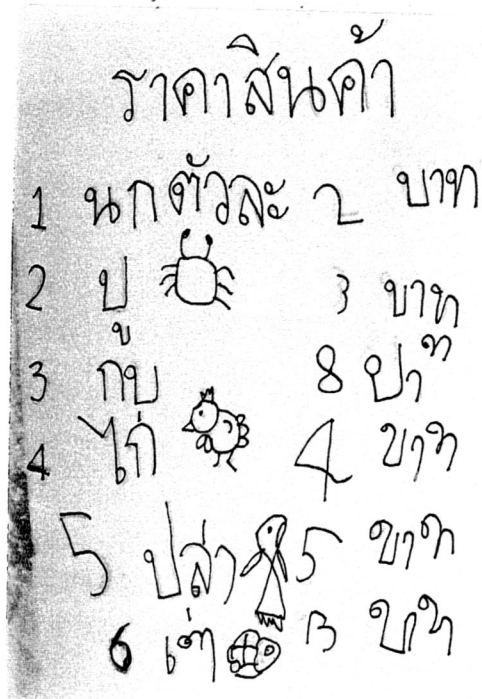 ราคาสินค้า
1 นกตัวละ 2 บาท
2 ปู 3 บาท
3 กบ 8 ปาท
4 ไก่ 4 บาท
5 ปล่า 5 บาท
6 เต่า 3 บาท